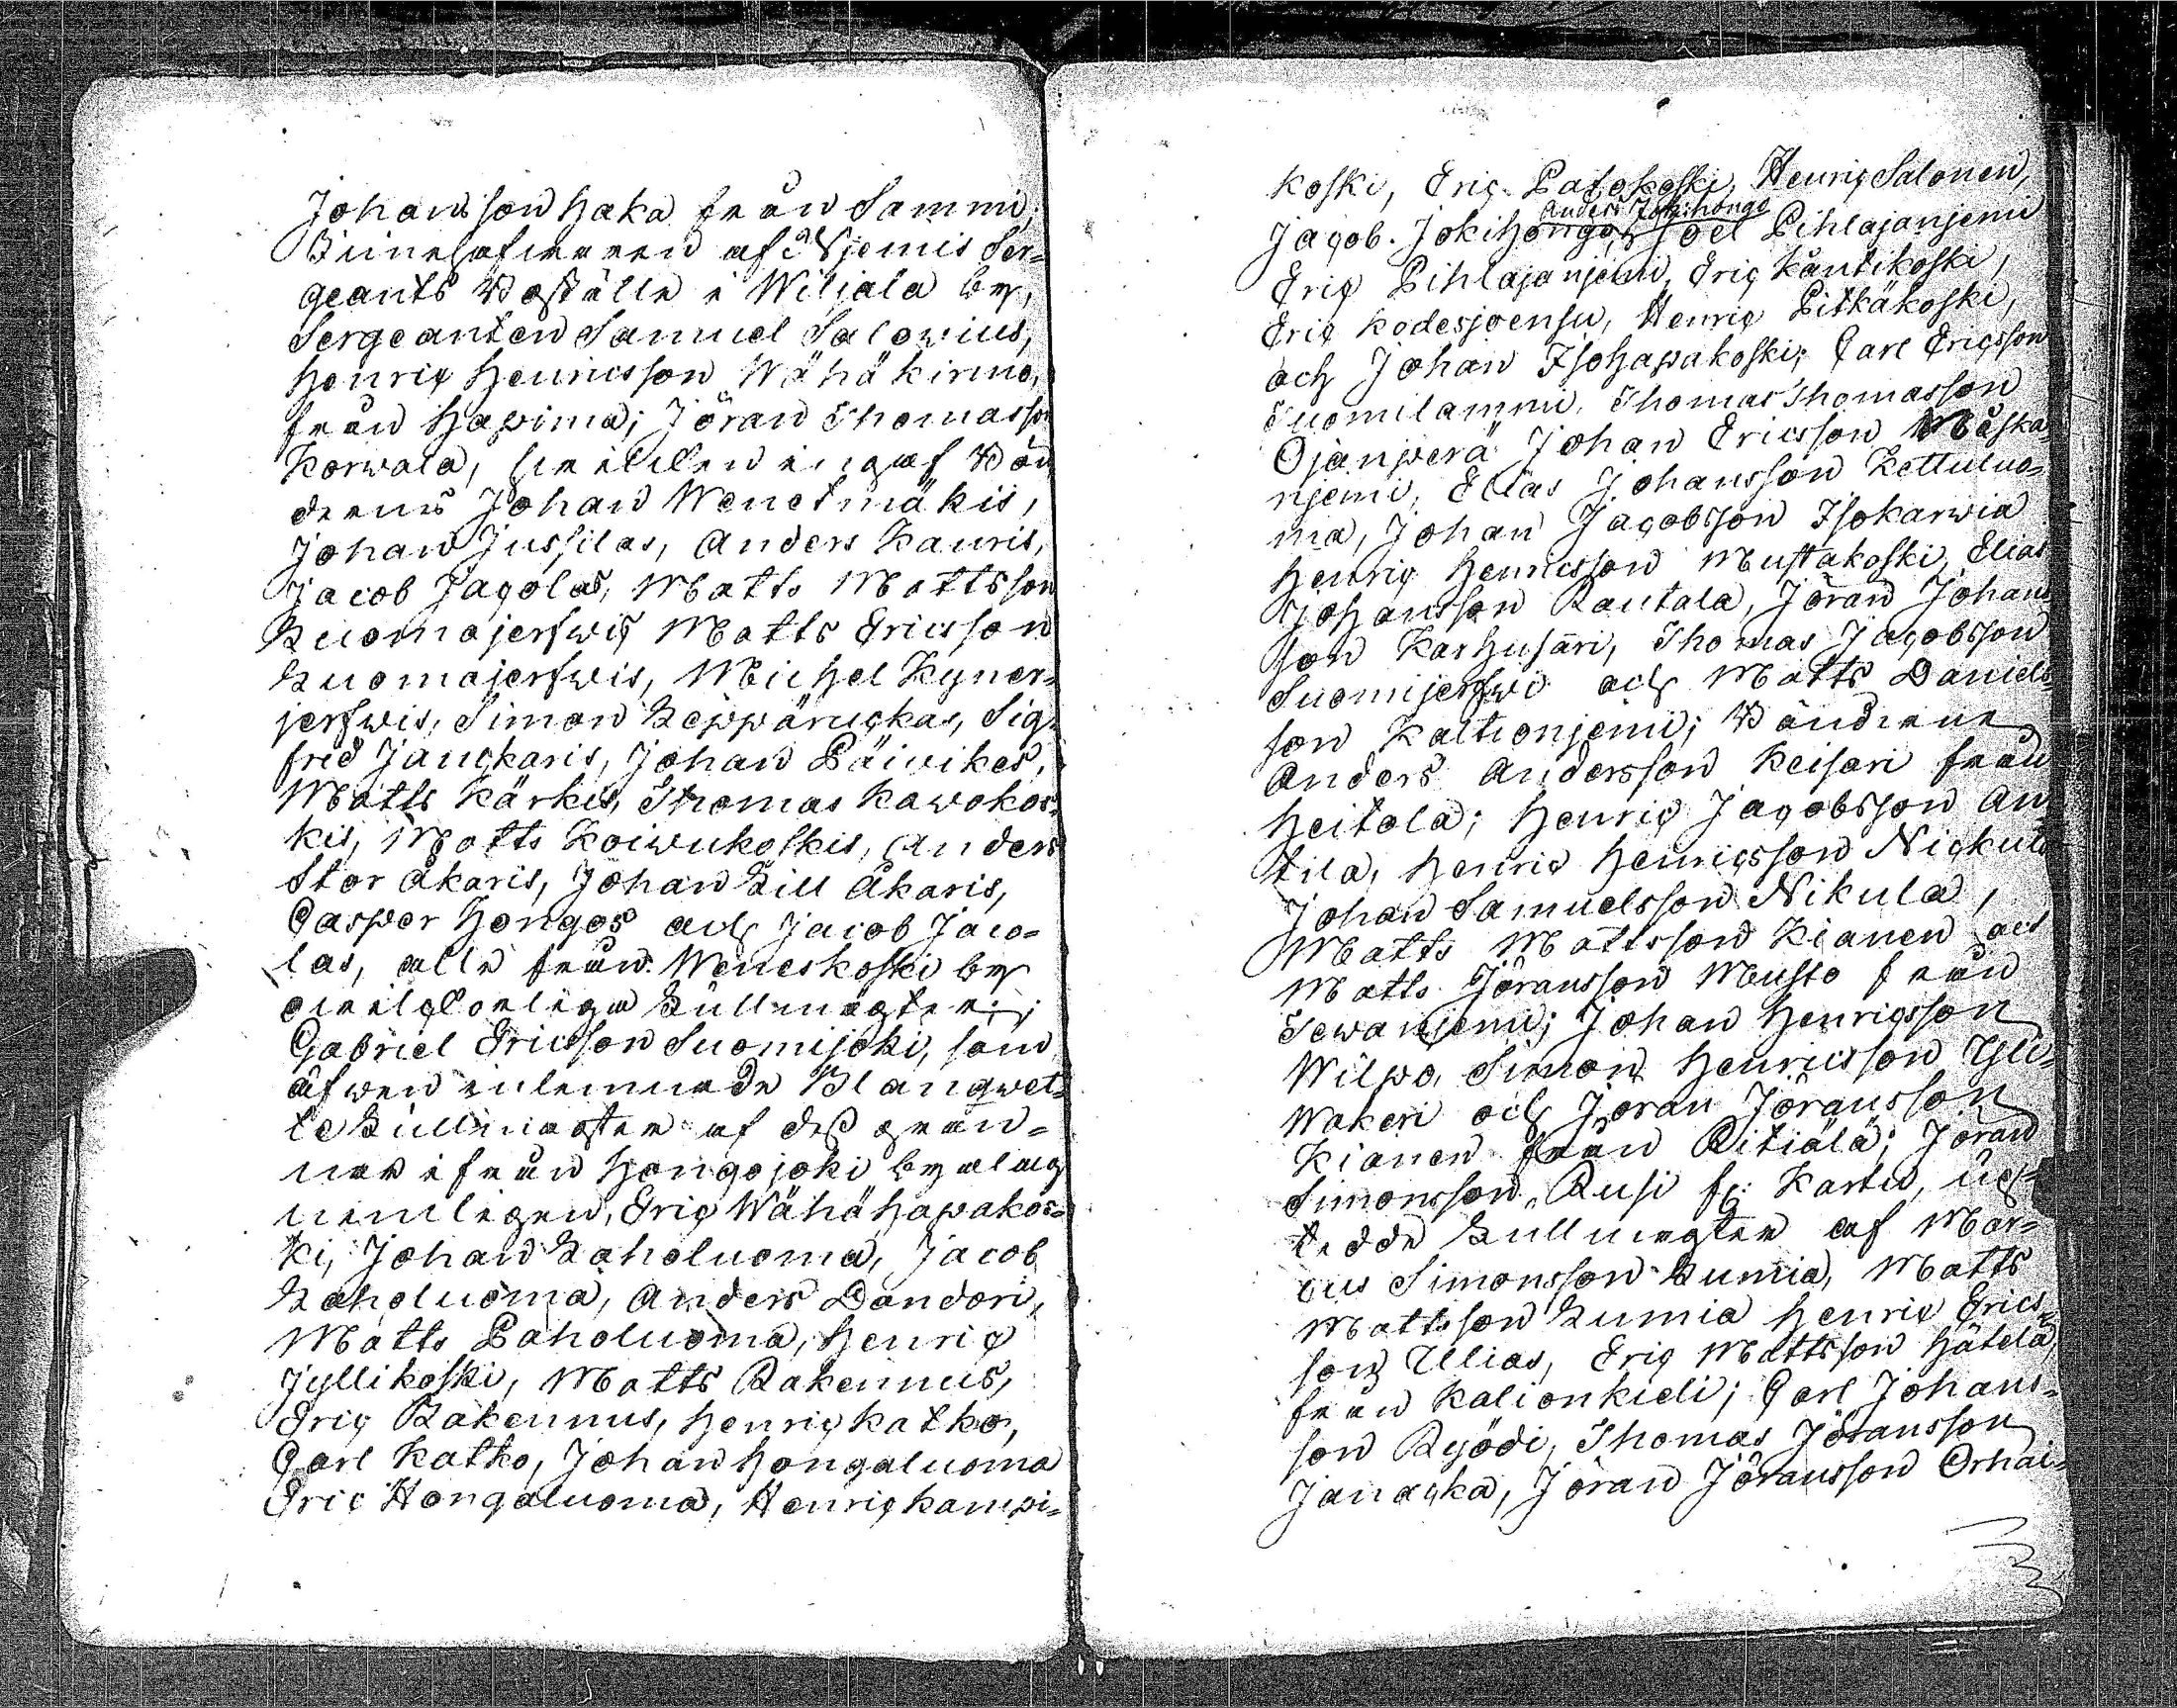 Johansson Haka från Sammi;
Brukaren af Njemis Ser-
geants Boställe i Wiljala by,
Sergeanten Samuel Salovius,
Henric Henricsson Wähäkirmo,
från Hapima; Jöran Thomasson
Korwala, fullmägtig af Bön
derne Johan Wenetmäkis,
Johan Jussilas, Anders Kauris,
Jacob Jacolas, Matts Mattsson
Luomajerfwis Matts Ericsson
Luomajerfwis, Michel Kyner-
jerfwis, Simon Leppäruckas, Sig-
fred Janckaris, Johan Päivikes,
Matts Kärkis, Thomas Kawokos-
kis, Matts Koiwukoskis, Anders
Stor Åkaris, Johan Lill Åkaris,
Casper Hongos och Jacob Jaco-
las, alle från Weneskoski by
Gabriel Ericsson Suomijoki, som
äfwen inlemnade Blanqvet-
te Fullmagter af dess gran-
nar ifrån Hongojoki byalag
nemligen, Eric Wähähapakos-
ki, Johan Laholuoma, Jacob
Laholuoma, Anders Dandori,
Matts Paholuoma, Henric
Jyllikoski, Matts Rakennus,
Eric Rakennus, Henric Katko,
Carl Katko, Johan Hongaluoma
Eric Hongaluoma, Henric Kampi-
koski, Eric Patokoski, Henric Salonen,
Anders Jokihongo
Jacob Jokihongo, Joel Pihlajanjemi
Eric Pihlajanjemi, Eric Kantikoski,
Eric Kodesjoensu, Henric Pitkäkoski,
och Johan Isohapakoski; Carl Ericsson
Suomilammi, Thomas Thomasson
Ojanperä Johan Ericsson Måska-
njemi, Elias Johansson Kettuluo-
ma, Johan Jacobsson Isokarwia
Henric Henricsson Mustakoski, Elias
Johansson Rautala, Jöran Johans
son Karhusari, Thomas Jacobsson
Suomijerfwi och Matts Daniels-
son Kaltionjemi; Bönderne
Anders Andersson Keisari från
Heitola; Henric Jacobsson An-
tila, Henric Henricsson Nickula
Johan Samuelsson Nikula,
Matts Mattsson Kianen och
Matts Jöransson Musto från
Tewanjemi; Johan Henricsson
Wilpo, Simon Henricsson Yli-
Wakeri och Jöran Jöransson
Kianen från Ritiälä; Jöran
Simonsson Rusi fr: Kartu, uch-
tedde Fullmagter af Mar-
cus Simonsson Lumia, Matts
Mattsson Lumia Henric Erics-
son Ullias, Eric Mattsson Hätelä,
från Kalionkieli; Carl Johans-
son Ryödi, Thomas Jöransson
Janacka, Jöran Jöransson Orhai-